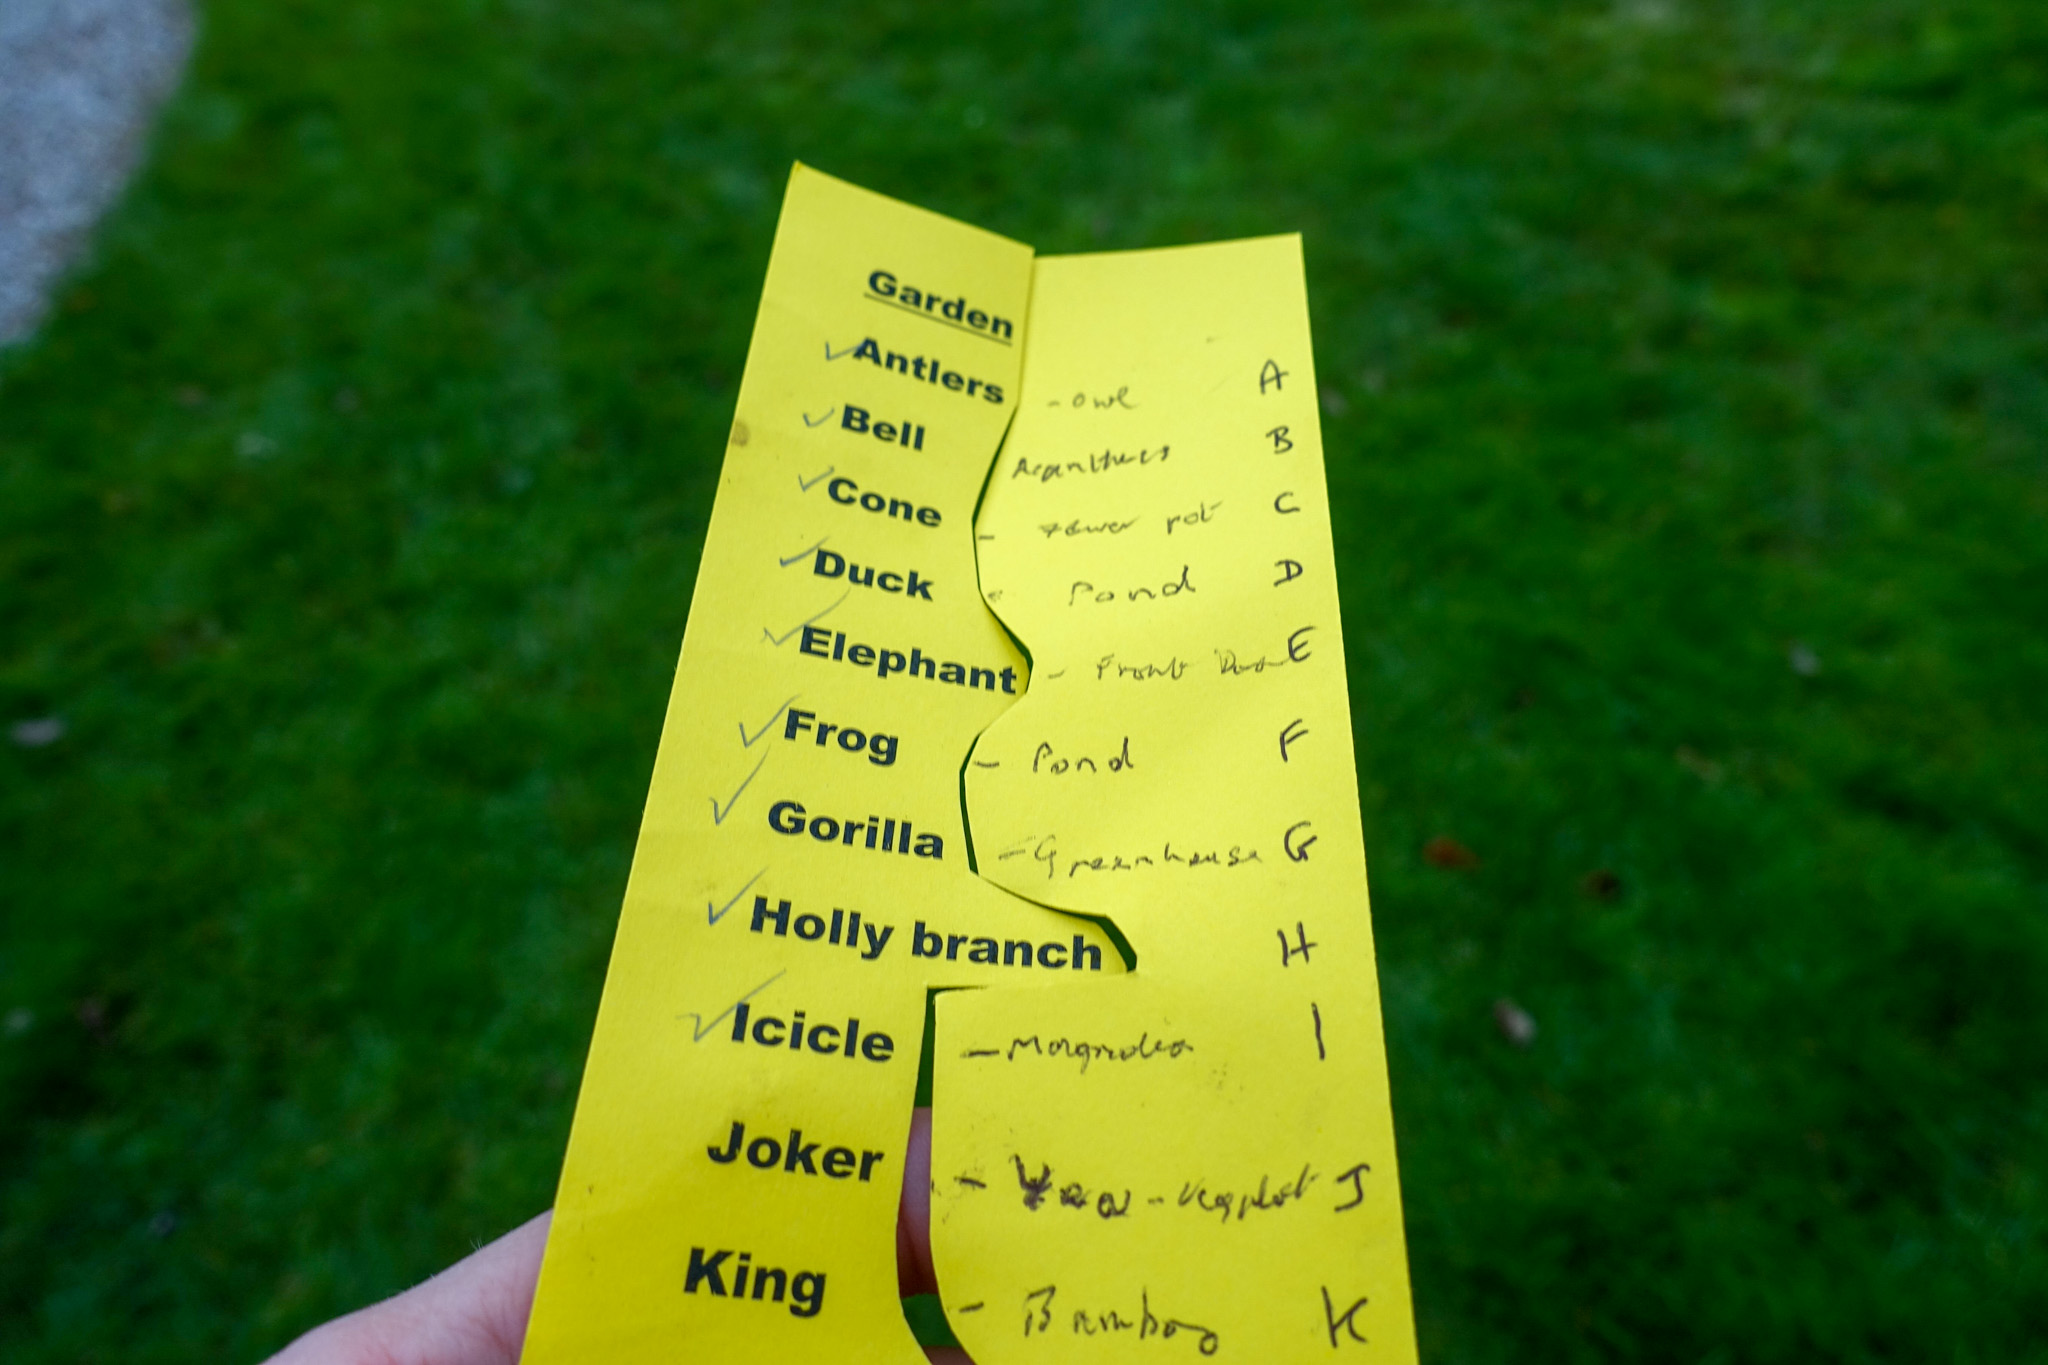 Garden
Antlers - owl A
Bell Acanthus B
Cone - flower pot C
Duck - Pond D
Elephant - Front Door E
Frog - Pond F
Gorilla - Greenhouse G
Holly branch H
Icicle - Magnolia I
Joker - J
King - Bamboo K